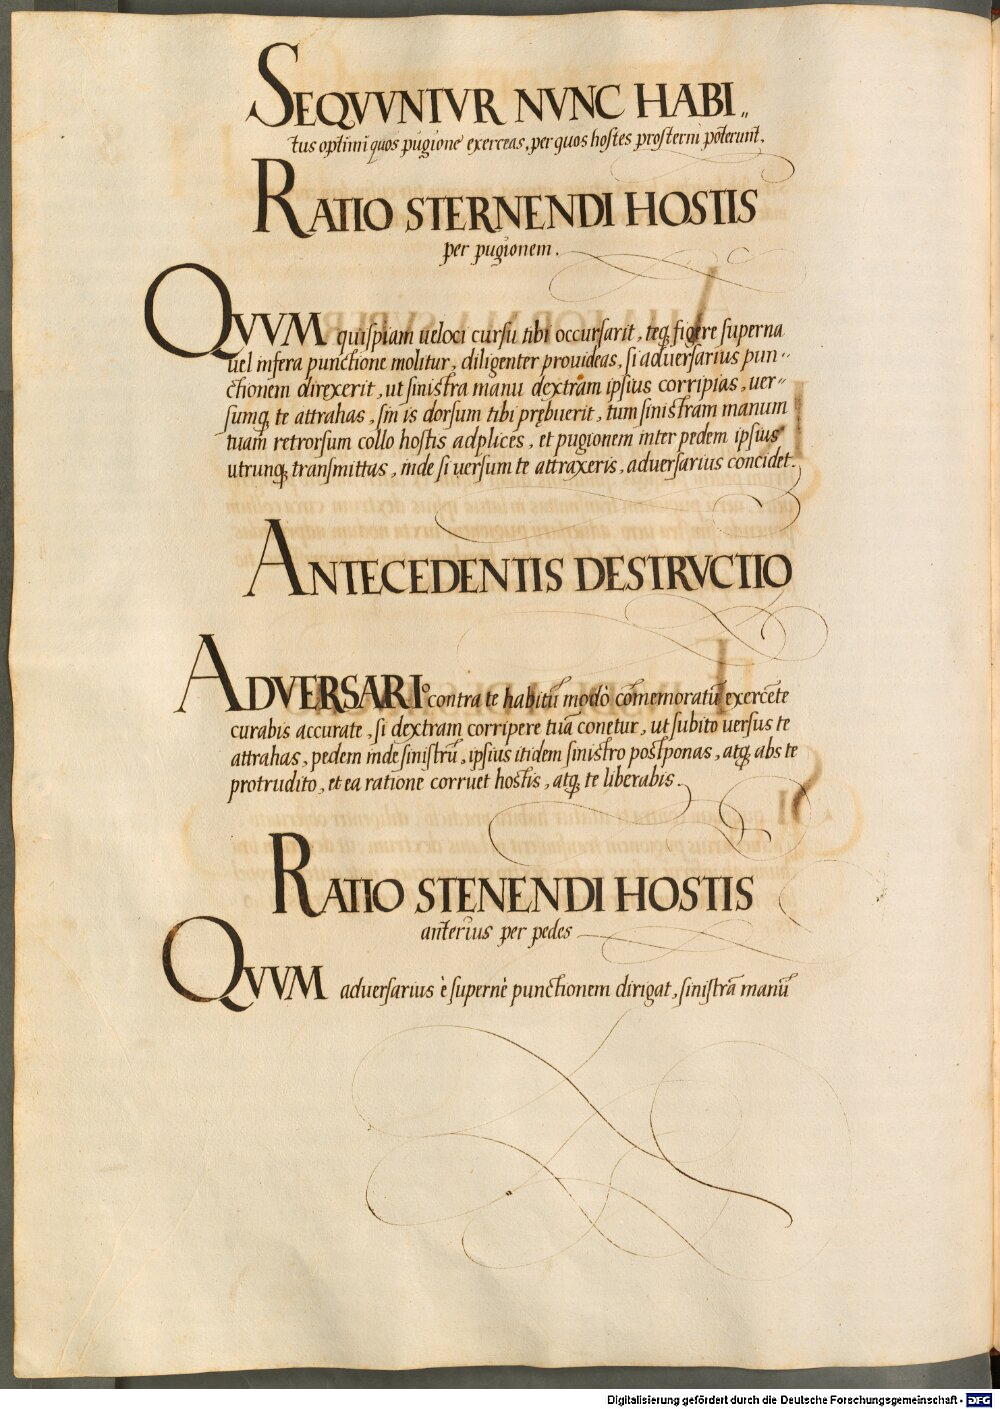 SEQVVNTVR NVNC HABI„
tus optimi quos pugione exerceas, per quos hostes prosterni poterunt.
RATIO STERNENDI HOSTIS
per pugionem.
QVVM quispiam ueloci cursu tibi occursarit, teq; figere superna
uel infera punctione molitur, diligenter prouideas, si aduersarius pun„
ctionem direxerit, ut sinistra manu dextram ipsius corripias, uer„
sumq; te attrahas, sin is dorsum tibi prębuerit, tum sinistram manum
tuam retrorsum collo hostis adplices, et pugionem inter pedem ipsius
utrunq; transmittas, inde si uersum te attraxeris, aduersarius concidet.
ANTECEDENTIS DESTRVCTIO
ADVERSARIº contra te habitū modò cōmemoratū exercēte
curabis accurate, si dextram corripere tuā conetur, ut subito uersus te
attrahas, pedem inde sinistrū, ipsius itidem sinistro postponas, atq; abs te
protrudito, et ea ratione corruet hostis, atq; te liberabis.
RATIO STENENDI HOSTIS
anterius per pedes
QVVM aduersarius è supernè punctionem dirigat, sinistrā manū
Digitalisierung gefördert durch die Deutsche Forschungsgemeinschaft - DFG